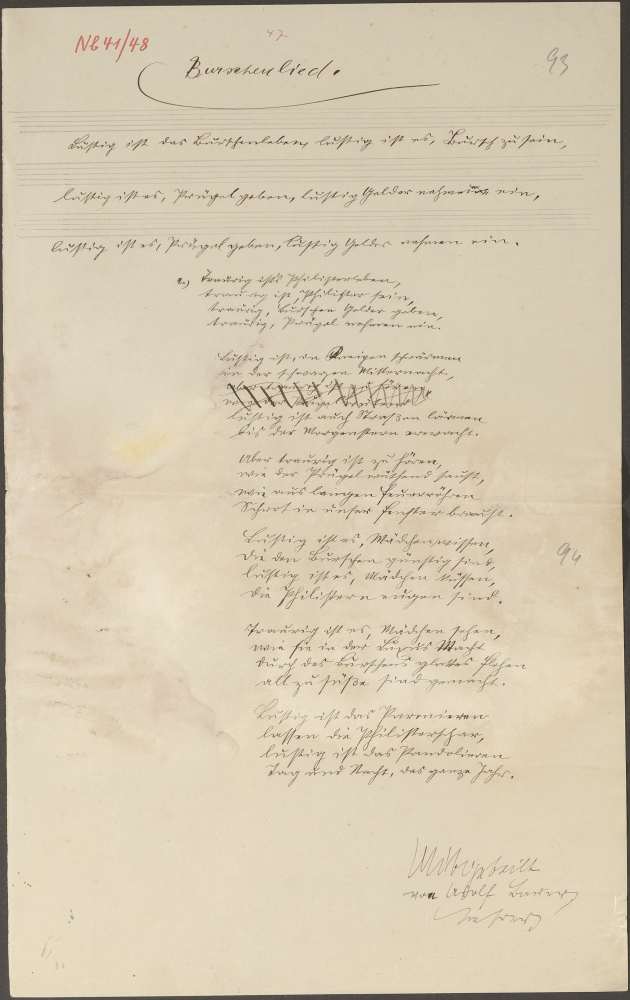 Nb 41/48
47.
93
Burschenlied.
Lustig ist das Burschenleben, lustig ist es, Bursch zu sein,
lustig ist es, Prügel geben, lustig Gelder nehmen ein,
lustig ist es, Prügel geben, lustig Gelder nehmen ein.
2.) Traurig ists Philisterleben,
traurig ist Philister sein,
traurig, Burschen Gelder geben,
traurig, Prügel nehmen ein.
Lustig ist, in Kneipen schwärmen
in der schwarzen Mitternacht,
lustig ist auch Straßen lärmen
bis der Morgenstern erwacht.
Aber traurig ist zu hören,
wie der Prügel wüthend saust,
wie aus langen Feuerröhren
Schrot in unser Fenster braust.
Lustig ist es, Mädchen wissen,
die den Burschen günstig sind,
lustig ist es, Mädchen küssen,
die Philistern eugen sind.
Traurig ist es, Mädchen sehen,
wie sie in der Macht
durch des Burschens glattes Flehen
all zu süße sind gemacht.
Lustig ist das
lassen die Philisterschar,
lustig ist das
Tag und Nacht, das ganze Jahr.
94
Mitgeteilt
von Adolf Bauer